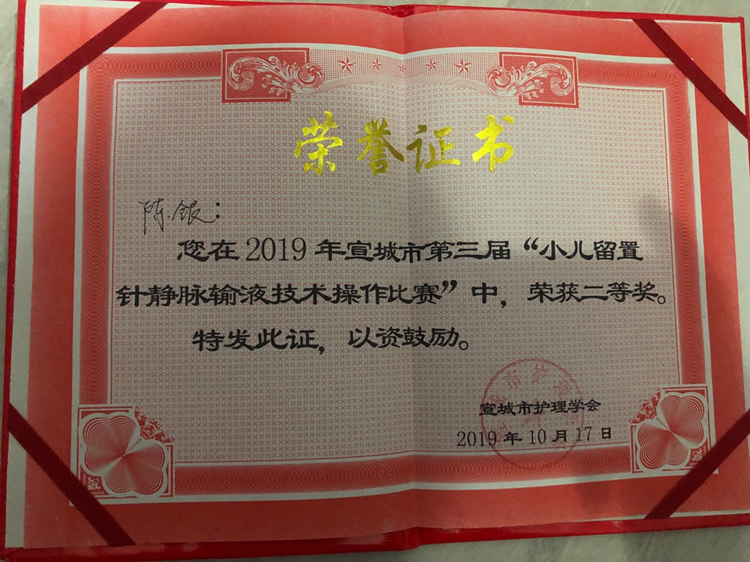 荣誉证书
陈银：
您在2019年宣城市第三届“小儿留置
针静脉输液技术操作比赛”中，荣获二等奖。
特发此证，以资鼓励。
宣城市护理学会
2019年10月17日